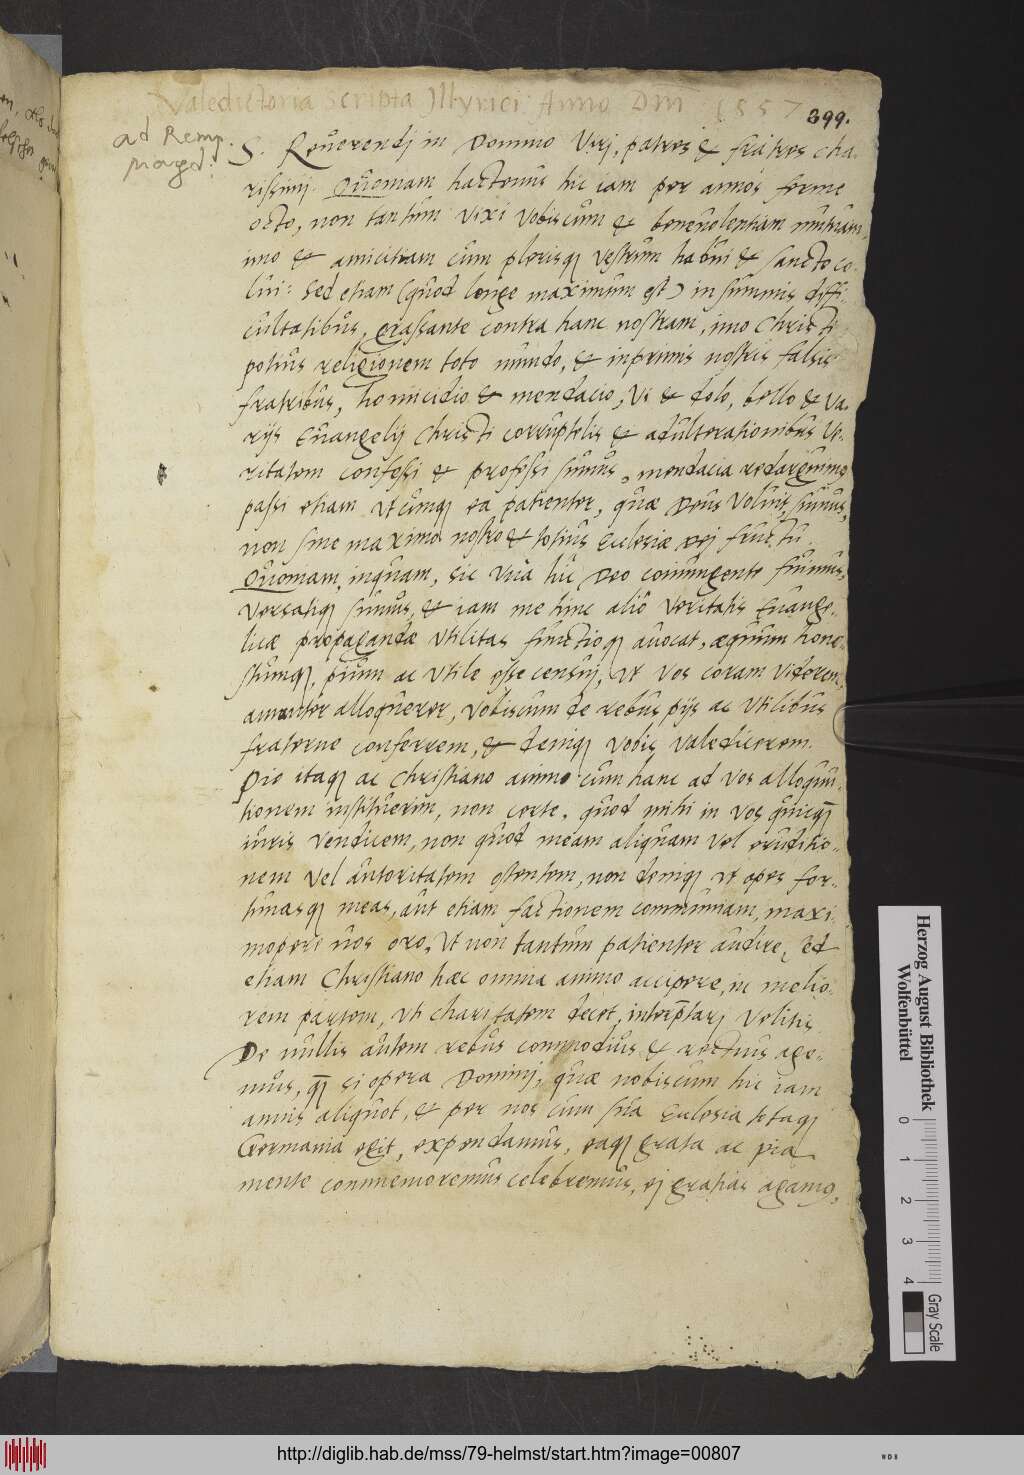 Valedictoria Scripta Illyrici Anno Dni 1557
399.
ad Remp.
Magd:
S. Reuerendj in Domino Virj, patres & fratres cha-
rissimj. Quoniam hactenus hic iam per annos ferme
octo, non tantum vixi vobiscum & beneuolentiam mutuam,
imo & amicitiam cum plerisq vestrum habui & sancte co-
lui: sed etiam (quod longe maximum est) in summis diffi-
cultatibus, grassante contra hanc nostram, imo Christi
potius religionem toto mundo, & inprimis nostris falsis
fratribus, homicidio & mendacio, vi & dolo, bello & va-
rijs Euangelij Christi corruptelis & adulterationibus ve-
ritatem confessi & professi sumus, mendacia redarguimus
passi etiam utcunq ea patienter, quae Deus voluit, sumus,
non sine maximo nostro & totius Ecclesiae Dej fructu.
Quoniam, inquam, sic una hic Deo coniungente fuimus,
versatiq sumus, & iam me hinc alio veritatis Euange-
licae propagandae vtilitas functioq auocat, aequum hone-
stumq, pium ac vtile esse censuj, vt vos coram viderem,
amanter alloquerer, vobiscum de rebus pijs ac vtilibus
fraterne conferrem, & deniq vobis valedicerem.
Pio itaq ac Christiano animo cum hanc ad vos alloquu-
tionem instituerim, non certe, quod mihi in vos quicq
iuris vendicem, non quod meam aliquam vel eruditio-
nem vel autoritatem ostentem, non deniq vt opes for-
tunasq meas, aut etiam factionem communiam, maxi-
mopere uos oro, vt non tantum patienter audire, sed
etiam Christiano haec omnia animo accipere, in melio-
rem partem, vti charitatem decet, interptarj velitis.
De nullis autem rebus commodius & rectius age-
mus, q si opera Dominj, quae nobiscum hic iam
annis aliquot, & per nos cum sua Ecclesia totaq
Germania egit, expendamus, eaq grata ac pia
mente commemoremus celebremus, ej gratias agamus,
Herzog August Bibliothek
Wolfenbüttel
0 1 2 3 4
Gray Scale
http://diglib.hab.de/mss/79-helmst/start.htm?image=00807